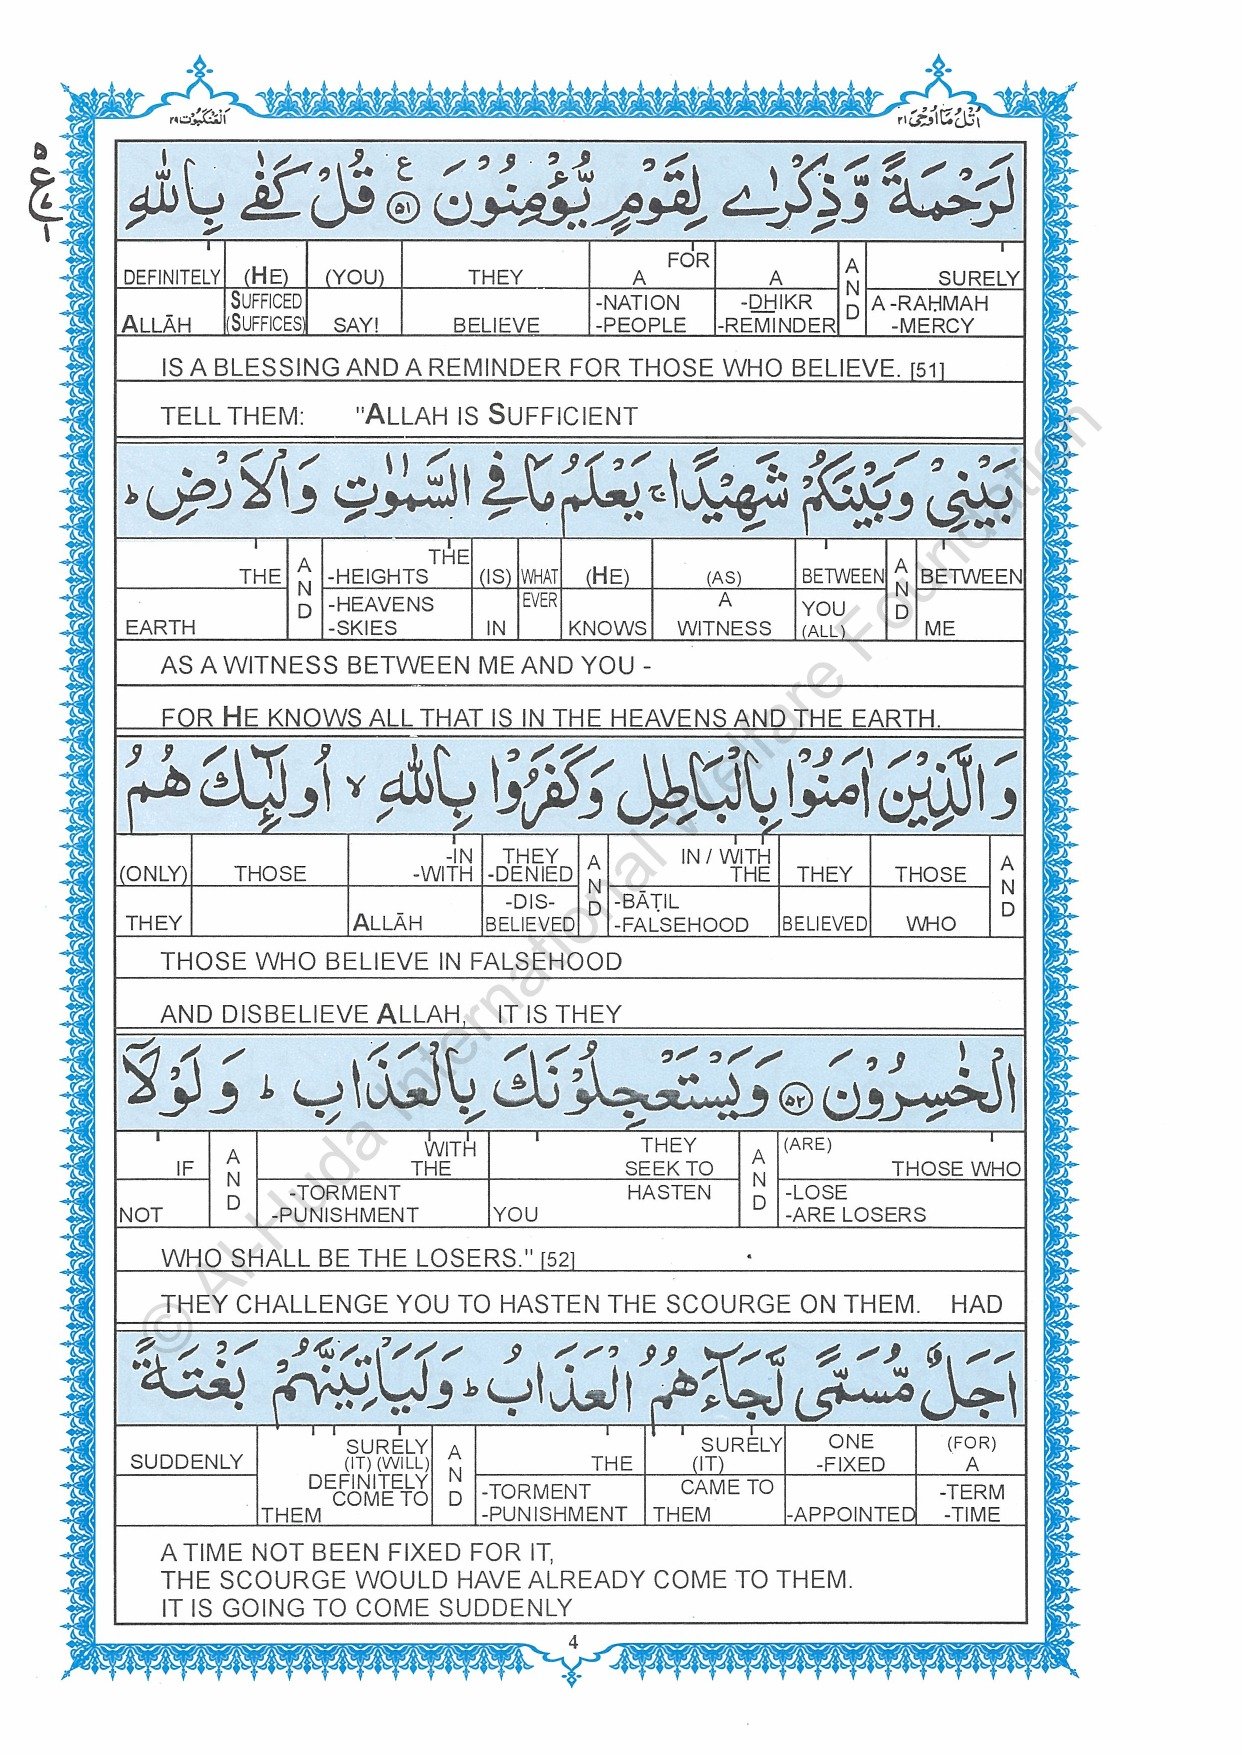 اَلْعَنْكَبُوْت ٢٩
اُتْلُ مَا اُوْحِیَ ٢١
٥
ع
١
لَرَحْمَةً وَّذِكْرٰى لِقَوْمٍ يُّؤْمِنُوْنَ ع ٥١ قُلْ كَفٰى بِاللّٰهِ
DEFINITELY (HE) (YOU) THEY FOR A A AND SURELY
ALLĀH SUFFICED (SUFFICES) SAY! BELIEVE -NATION -PEOPLE -DHIKR -REMINDER A -RAḤMAH -MERCY
IS A BLESSING AND A REMINDER FOR THOSE WHO BELIEVE. [51]
TELL THEM: "ALLAH IS SUFFICIENT
بَيْنِىْ وَبَيْنَكُمْ شَهِيْدًا ج يَعْلَمُ مَا فِى السَّمٰوٰتِ وَالْاَرْضِ ط
THE AND THE -HEIGHTS (IS) WHAT (HE) (AS) BETWEEN AND BETWEEN
EARTH -HEAVENS -SKIES IN EVER KNOWS A WITNESS YOU (ALL) ME
AS A WITNESS BETWEEN ME AND YOU -
FOR HE KNOWS ALL THAT IS IN THE HEAVENS AND THE EARTH.
وَالَّذِيْنَ اٰمَنُوْا بِالْبَاطِلِ وَكَفَرُوْا بِاللّٰهِ لا اُولٰٓئِكَ هُمُ
(ONLY) THOSE -IN -WITH THEY -DENIED AND IN / WITH THE THEY THOSE AND
THEY ALLĀH -DIS- BELIEVED -BĀṬIL -FALSEHOOD BELIEVED WHO
THOSE WHO BELIEVE IN FALSEHOOD
AND DISBELIEVE ALLAH, IT IS THEY
الْخٰسِرُوْنَ ٥٢ وَيَسْتَعْجِلُوْنَكَ بِالْعَذَابِ ط وَلَوْلَاۤ
IF AND WITH THE THEY SEEK TO AND (ARE) THOSE WHO
NOT -TORMENT -PUNISHMENT YOU HASTEN -LOSE -ARE LOSERS
WHO SHALL BE THE LOSERS." [52]
THEY CHALLENGE YOU TO HASTEN THE SCOURGE ON THEM. HAD
اَجَلٌ مُّسَمًّى لَّجَآءَهُمُ الْعَذَابُ ط وَلَيَاْتِيَنَّهُمْ بَغْتَةً
SUDDENLY SURELY (IT) (WILL) DEFINITELY COME TO AND THE SURELY (IT) ONE -FIXED (FOR) A
THEM -TORMENT -PUNISHMENT CAME TO THEM -APPOINTED -TERM -TIME
A TIME NOT BEEN FIXED FOR IT,
THE SCOURGE WOULD HAVE ALREADY COME TO THEM.
IT IS GOING TO COME SUDDENLY
4
© Al-Huda International Welfare Foundation